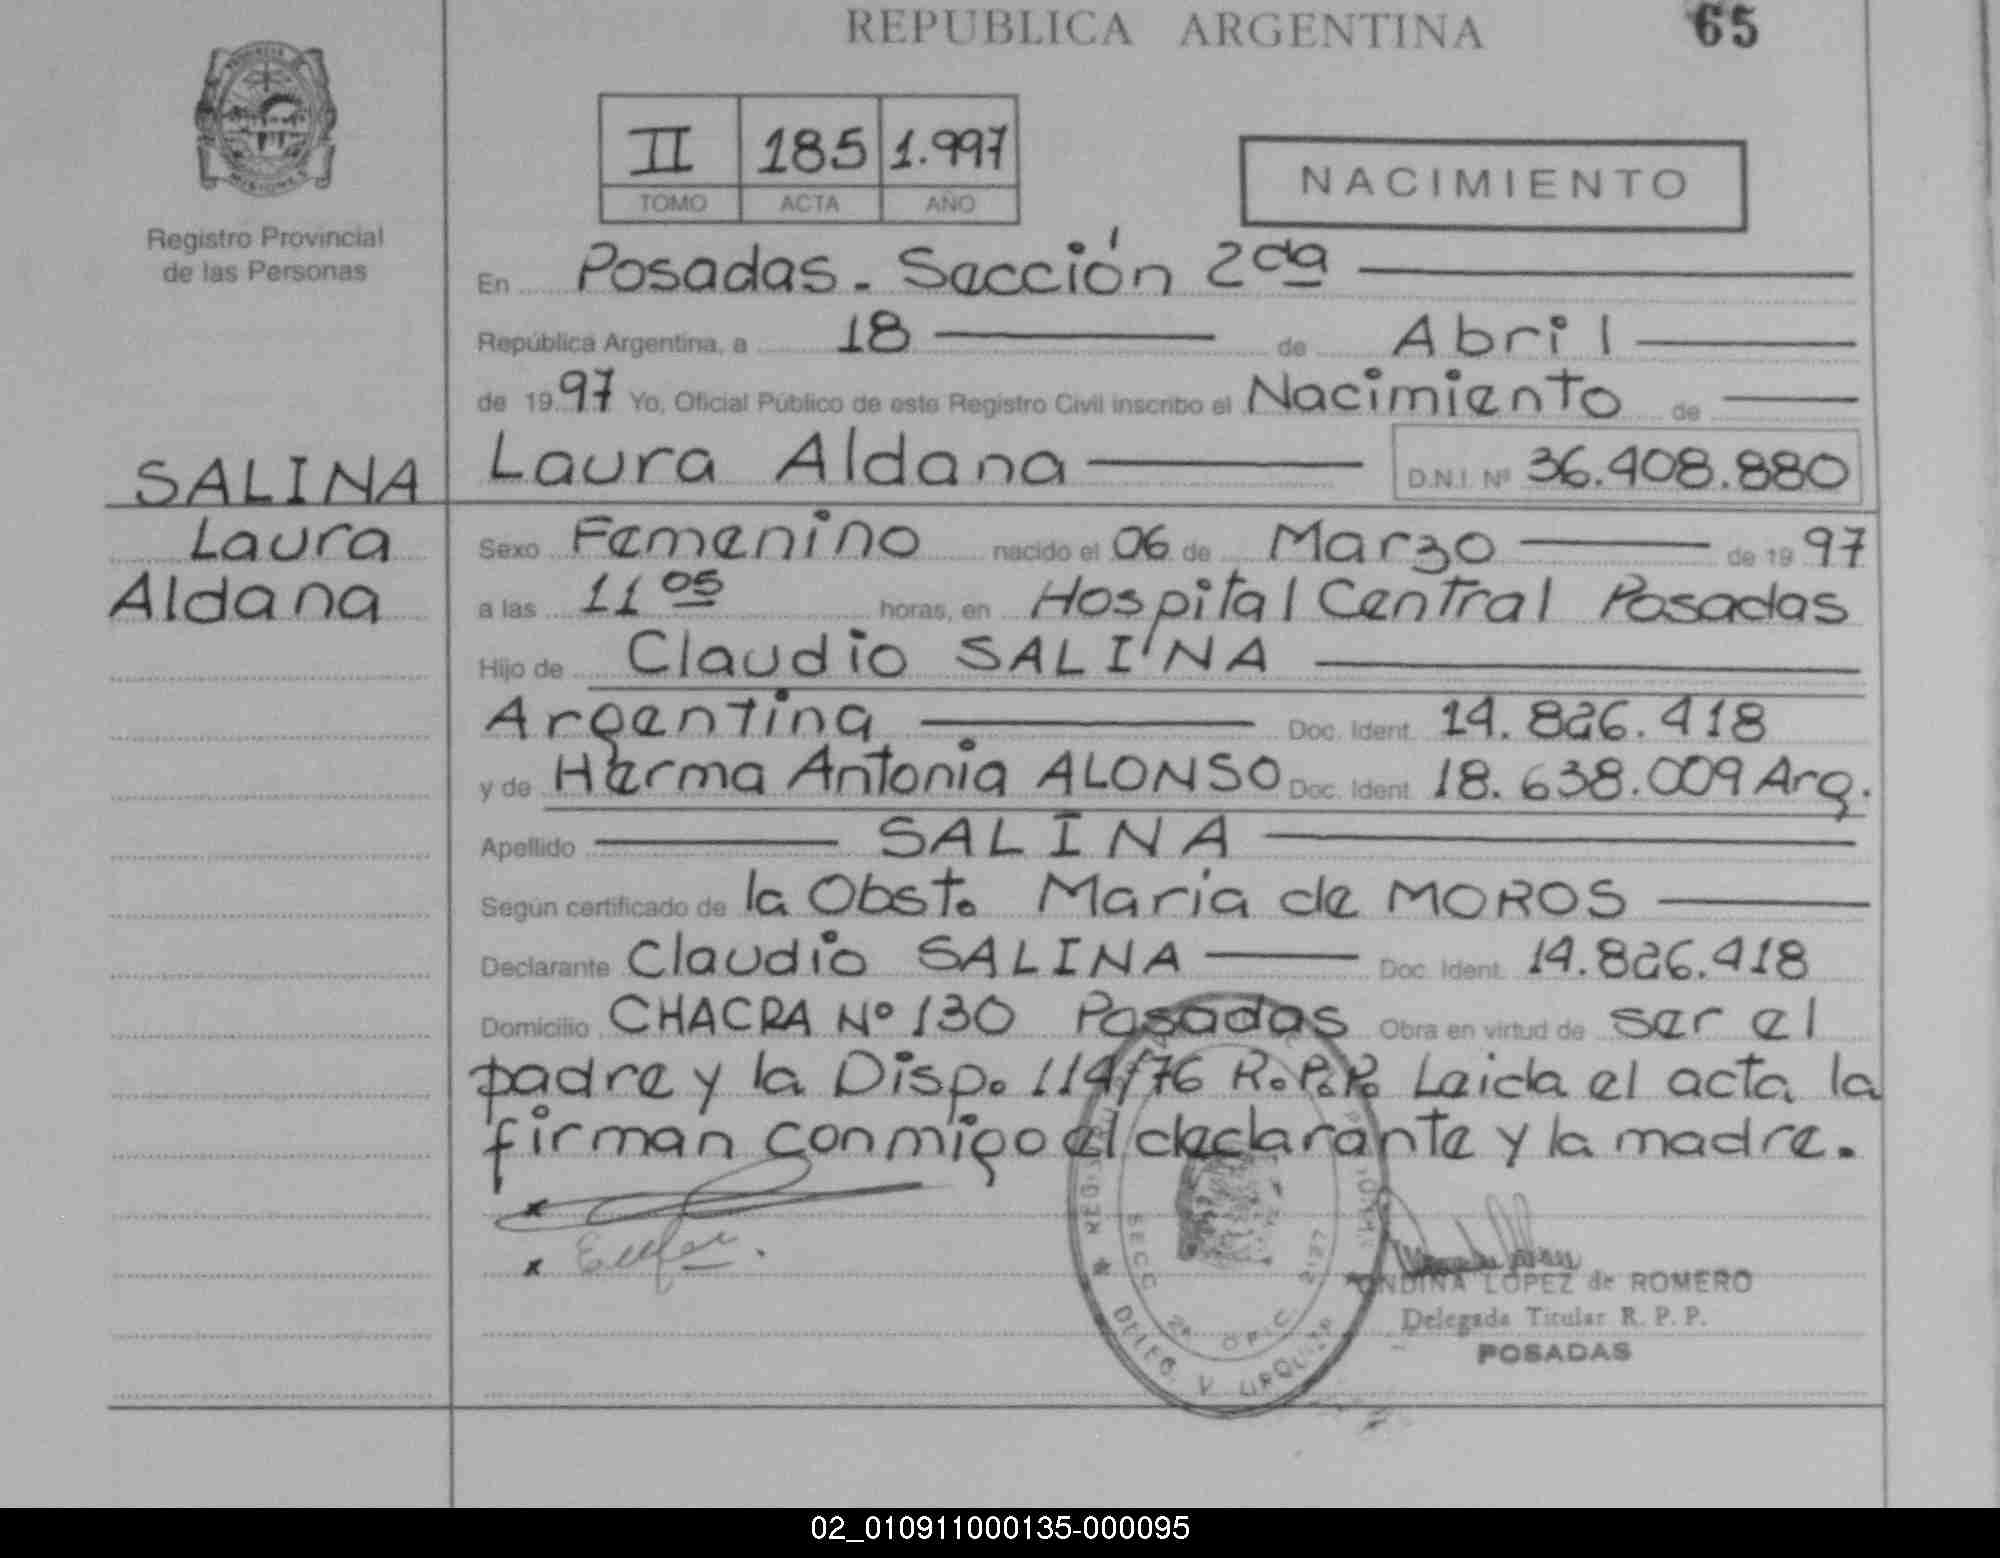 REPUBLICA ARGENTINA 65
PROVINCIA
MISIONES
II 185 1.997
TOMO ACTA AÑO
NACIMIENTO
Registro Provincial
de las Personas
En Posadas. Sección 2da
República Argentina, a 18 de Abril
de 1997 Yo, Oficial Público de este Registro Civil inscribo el Nacimiento de
SALINA Laura Aldana D.N.I. Nº 36.408.880
Laura Sexo Femenino nacido el 06 de Marzo de 1997
Aldana a las 11 05 horas, en Hospital Central Posadas
Hijo de Claudio SALINA
Argentina Doc. Ident. 14.826.418
y de Herma Antonia ALONSO Doc. Ident. 18.638.009 Arg.
Apellido SALINA
Según certificado de la Obst. Maria de MOROS
Declarante Claudio SALINA Doc. Ident. 14.826.418
Domicilio CHACRA Nº 130 Posadas Obra en virtud de ser el
padre y la Disp. 114/76 R.P.P. Leida el acta la
firman conmigo el declarante y la madre.
x
x
SECC 2ª OFIC. 2127
DELEG. V. URQUIZA
ONDINA LOPEZ de ROMERO
Delegada Titular R. P. P.
POSADAS
02_010911000135-000095